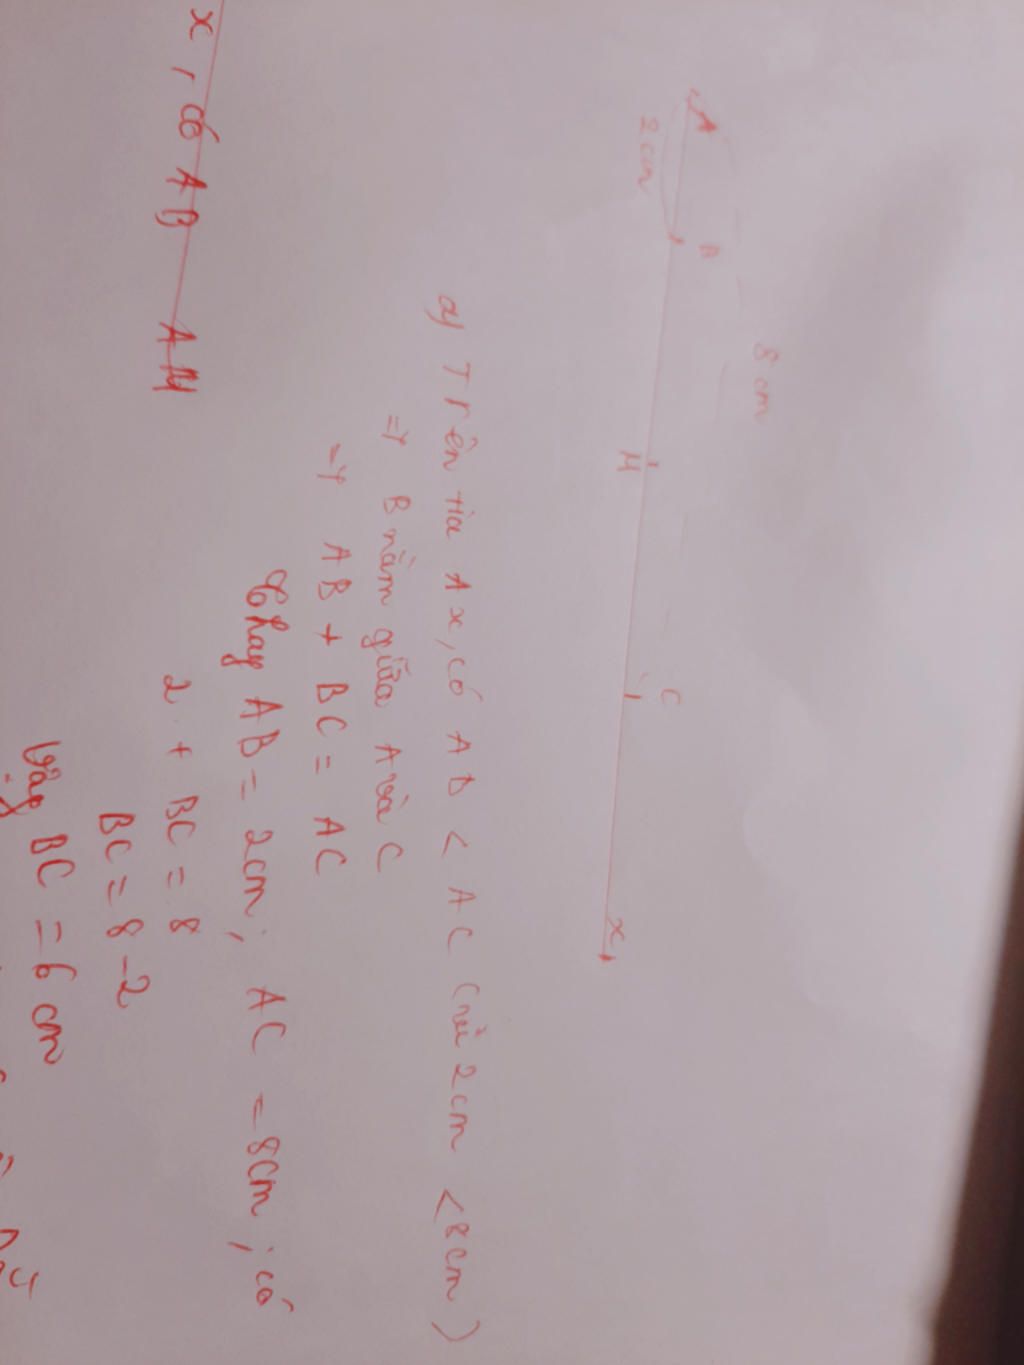 8 cm
A B C
2 cm M x
a) Trên tia Ax, có AB < AC (vì 2cm < 8cm)
=> B nằm giữa A và C
=> AB + BC = AC
Thay AB = 2cm; AC = 8cm, có
2 + BC = 8
BC = 8 - 2
Vậy BC = 6 cm
x, có AB AM